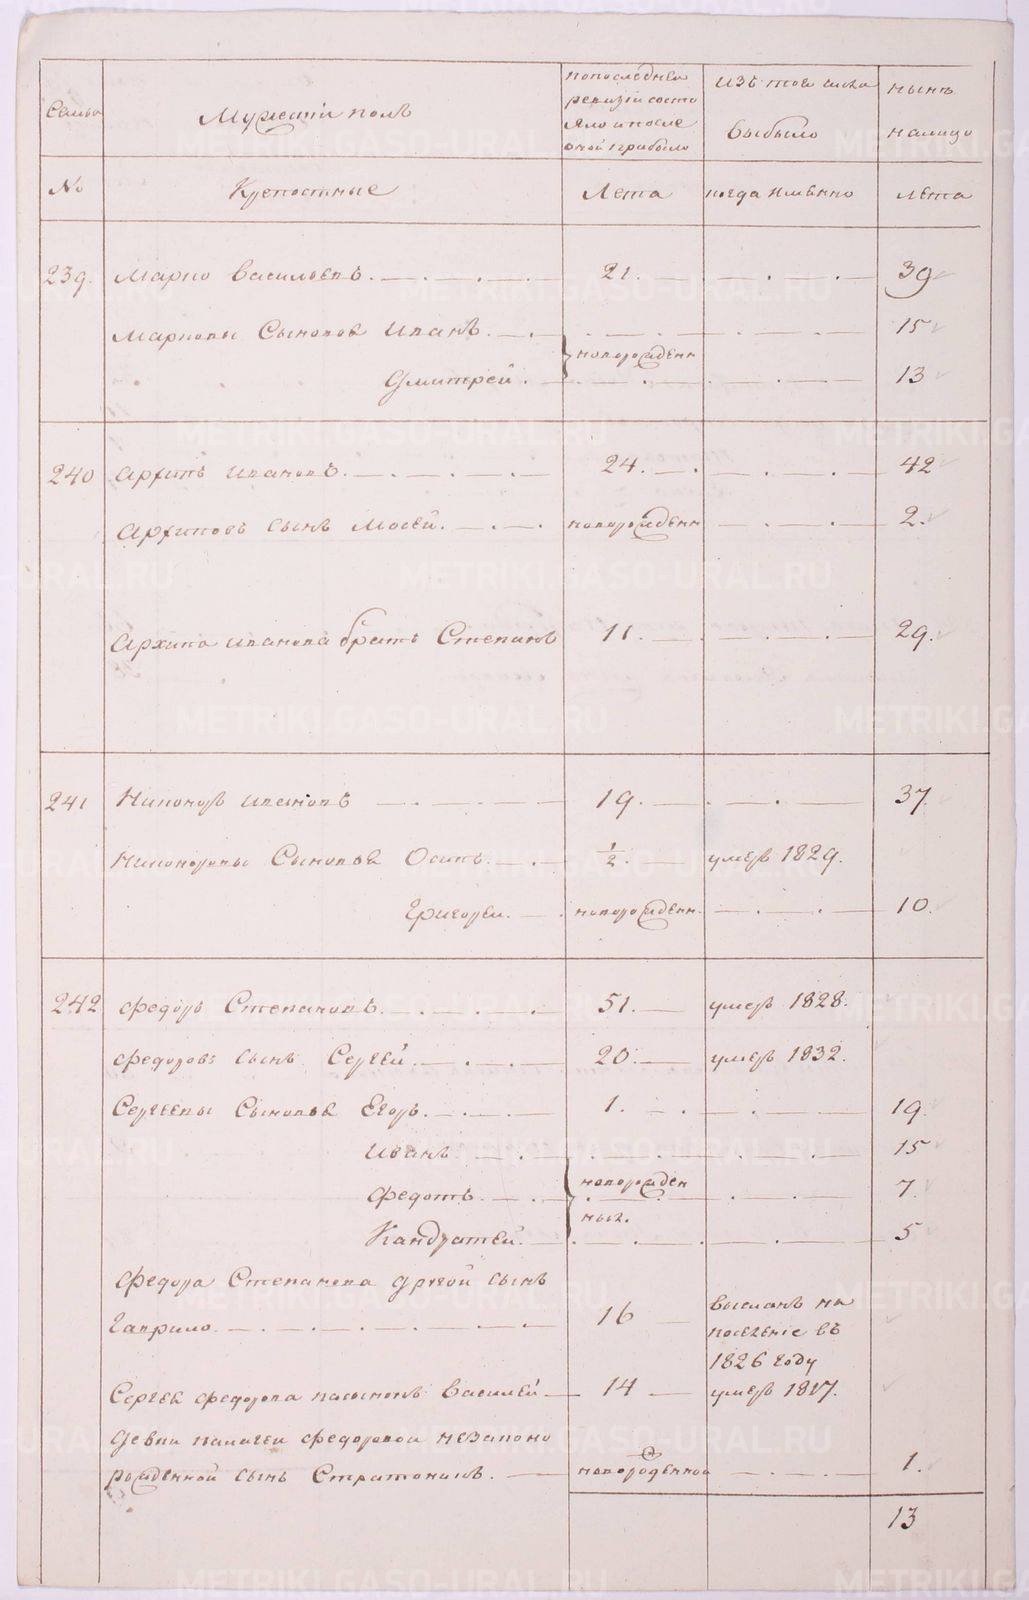 Семьи
Мужескій полъ
попоследней
ревизіи состо
яло и после
оной прибыло
Изъ того числа
выбыло
нынѣ
налицо
№
Крепостные
Лета
когда имянно
лета
239. Марко Васильевъ. 21. 39
Марковы Сыновья Иванъ. 15
новорожденн
Дмитрей. 13
240 Архипъ Ивановъ. 24. 42
Архиповъ сынъ Мосей. новорожденн 2.
Архипа Иванова братъ Степанъ 11. 29.
241 Никоноръ Ивановъ 19. 37
Никоноровы Сыновья Осипъ. ½. умеръ 1829.
Григорей. новорожденн. 10.
242 Федоръ Степановъ. 51. умеръ 1828.
Федоровъ сынъ Сергей. 20. умеръ 1832.
Сергеевы Сыновья Егоръ. 1. 19
Иванъ 15
Федотъ. новорожден 7.
ныя.
Кандратей. 5
Федора Степанова другой сынъ
Гаврило. 16 высланъ на
поселеніе въ
1826 году
Сергея Федорова пасынокъ Василей 14 умеръ 1817.
Девки Палагеи Федоровой незаконо
рожденной сынъ Стратоникъ. новорожденной 1.
13
METRIKI.GASO-URAL.RU